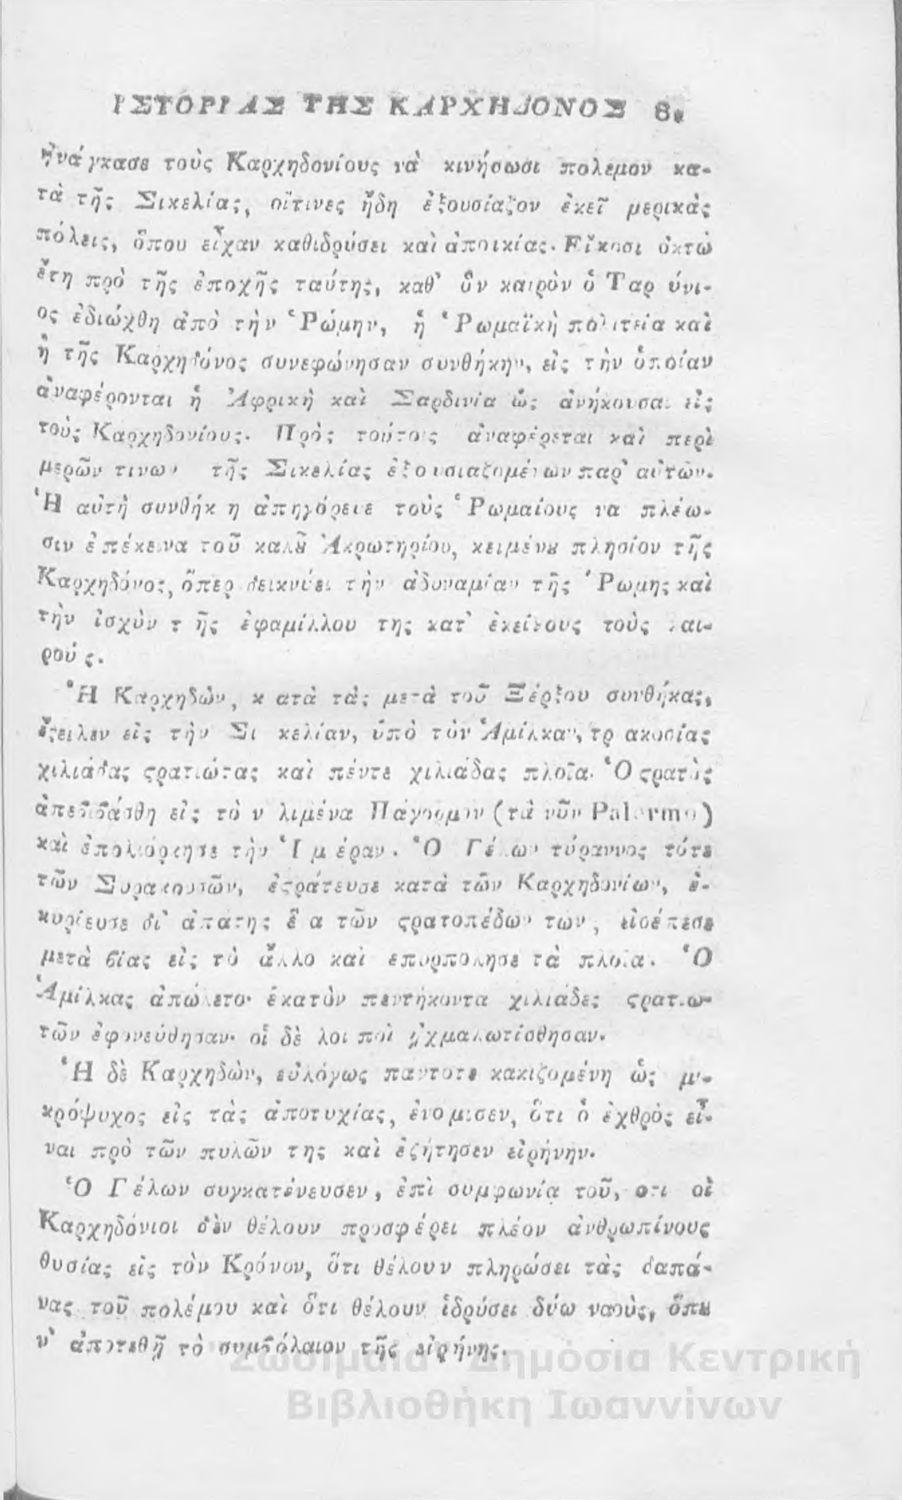 ΙΣΤΟΡΙΑΣ ΤΗΣ ΚΑΡΧΗΔΟΝΟΣ 8.
ἠνάγκασε τοὺς Καρχηδονίους νὰ κινήσωσι πολεμον κα-
τὰ τῆς Σικελίας, οἵτινες ἤδη ἐξουσίαζον ἐκεῖ μερικὰς
πόλεις, ὅπου εἶχαν καθιδρύσει καὶ ἀποικίας. Εἴκοσι ὀκτὼ
ἔτη πρὸ τῆς ἐποχῆς ταύτης, καθ' ὃν καιρὸν ὁ Ταρ ύνι-
ος ἐδιώχθη ἀπὸ τὴν Ῥώμην, ἡ Ῥωμαϊκὴ πολιτεία καὶ
ἡ τῆς Καρχηδόνος συνεφώνησαν συνθήκην, εἰς τὴν ὁποίαν
ἀναφέρονται ἡ Ἀφρικὴ καὶ Σαρδινία ὡς ἀνήκουσαι εἰς
τοὺς Καρχηδονίους. Πρὸς τούτοις ἀναφέρεται καὶ περὶ
μερῶν τινων τῆς Σικελίας ἐξουσιαζομένων παρ' αὐτῶν.
Ἡ αὐτὴ συνθήκ η ἀπηγόρευε τοὺς Ῥωμαίους να πλέω-
σιν ἐπέκεινα τοῦ καλȣ Ἀκρωτηρίου, κειμένȣ πλησίον τῆς
Καρχηδόνος, ὅπερ δεικνύει τὴν ἀδυναμίαν τῆς Ῥωμης καὶ
τὴν ἰσχὺν τ ῆς ἐφαμίλλου της κατ' ἐκείνους τοὺς και-
ρού ς.
Ἡ Καρχηδὼν, κ ατὰ τὰς μετὰ τοῦ Ξέρξου συνθήκας,
ἔςειλεν εἰς τὴν Σι κελίαν, ὑπὸ τὸν Ἀμίλκαν, τρ ακοσίας
χιλιάδας ςρατιώτας καὶ πέντε χιλιάδας πλοῖα. Ὁ ςρατὸς
ἀπεβιβάσθη εἰς τὸ ν λιμένα Πάνορμον (τὰ νῦν Palermo)
καὶ ἐπολιόρκησε τὴν Ἱ μ έραν. Ὁ Γέλων τύραννος τότε
τῶν Συρακουσῶν, ἐςράτευσε κατὰ τῶν Καρχηδονίων, ἐ-
κυρίευσε δι' ἀπάτης ἓ α τῶν ςρατοπέδων των, εἰσέπεσε
μετὰ βίας εἰς τὸ ἄλλο καὶ επυρπολησε τὰ πλοῖα. Ὁ
Ἀμίλκας ἀπώλετο· ἑκατὸν πεντήκοντα χιλιάδες ςρατιω-
τῶν ἐφονεύθησαν· οἱ δὲ λοι ποὶ ᾐχμαλωτίσθησαν.
Ἡ δὲ Καρχηδὼν, εὐλόγως παντοτε κακιζομένη ὡς μι-
κρόψυχος εἰς τὰς ἀποτυχίας, ἐνομισεν, ὅτι ὁ ἐχθρὸς εἶ-
ναι πρὸ τῶν πυλῶν της καὶ ἐζήτησεν εἰρήνην.
Ὁ Γέλων συγκατένευσεν, ἐπὶ συμφωνίᾳ τοῦ, οτι οἱ
Καρχηδόνιοι δὲν θέλουν προσφέρει πλέον ἀνθρωπίνους
θυσίας εἰς τὸν Κρόνον, ὅτι θέλουν πληρώσει τὰς δαπά-
νας τοῦ πολέμου καὶ ὅτι θέλουν ἱδρύσει δύω ναοὺς, ὅπȣ
ν' ἀποτεθῇ τὸ συμβόλαιον τῆς εἰρήνης.
Ζωσιμαία Δημόσια Κεντρική
Βιβλιοθήκη Ιωαννίνων